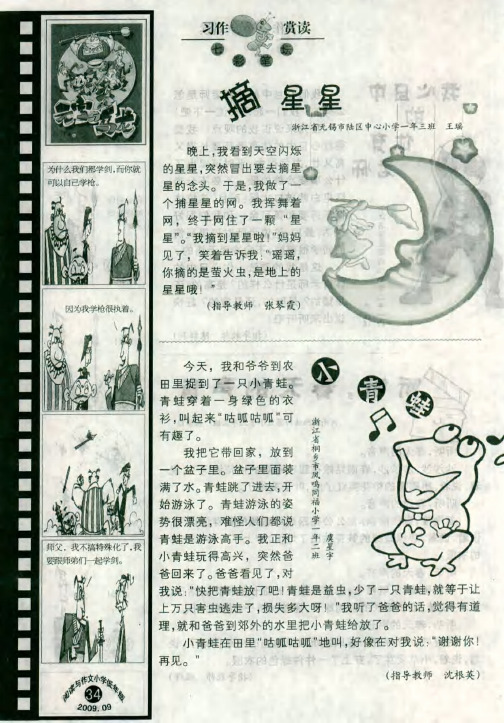 习作 赏读
七彩论坛
摘星星
浙江省无锡市陆区中心小学一年三班 王瑶
晚上，我看到天空闪烁
的星星，突然冒出要去摘星
星的念头。于是，我做了一
个捕星星的网。我挥舞着
网，终于网住了一颗“星
星”。“我摘到星星啦！”妈妈
见了，笑着告诉我：“瑶瑶，
你摘的是萤火虫，是地上的
星星哦！
（指导教师 张琴霞）
小青蛙
浙江省桐乡市凤鸣同福小学一年二班 虞星宇
今天，我和爷爷到农
田里捉到了一只小青蛙。
青蛙穿着一身绿色的衣
衫，叫起来“咕呱咕呱”可
有趣了。
我把它带回家，放到
一个盆子里。盆子里面装
满了水。青蛙跳了进去，开
始游泳了。青蛙游泳的姿
势很漂亮，难怪人们都说
青蛙是游泳高手。我正和
小青蛙玩得高兴，突然爸
爸回来了。爸爸看见了，对
我说：“快把青蛙放了吧！青蛙是益虫，少了一只青蛙，就等于让
上万只害虫逃走了，损失多大呀！”我听了爸爸的话，觉得有道
理，就和爸爸到郊外的水里把小青蛙给放了。
小青蛙在田里“咕呱咕呱”地叫，好像在对我说：“谢谢你！
再见。”
（指导教师 沈根英）
为什么我们都学剑，而你就
可以自己学枪。
因为我学枪很执着。
师父，我不搞特殊化了，我
要跟师弟们一起学剑。
阅读与作文小学低年级版
34
2009.09